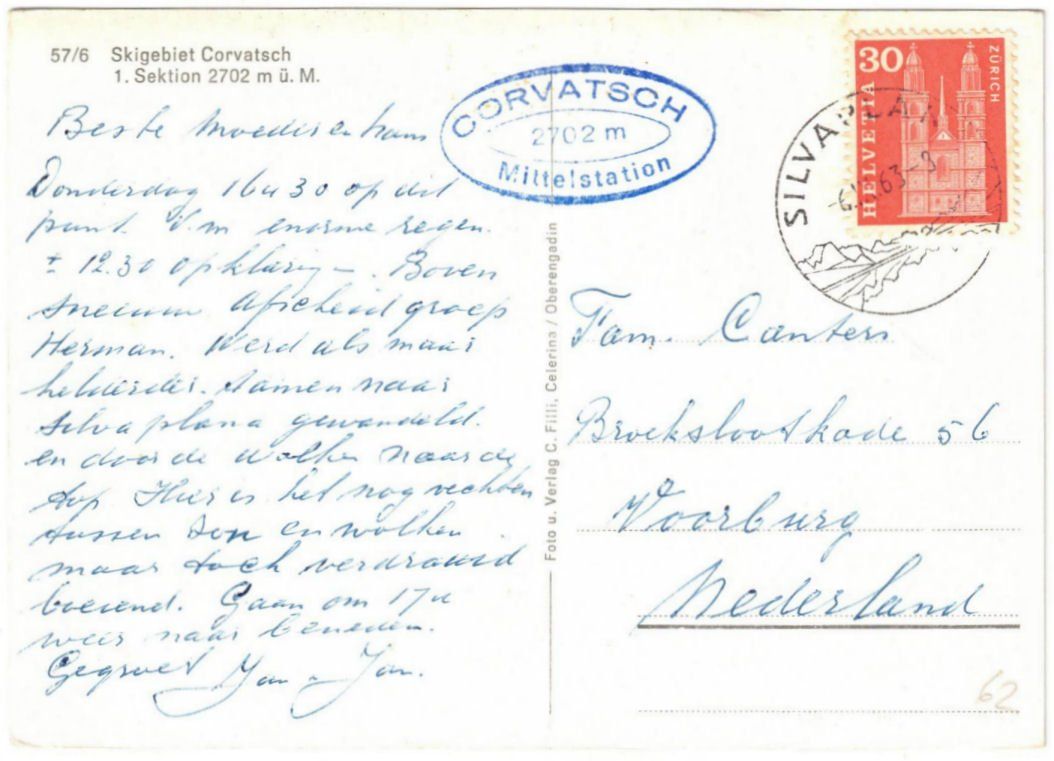 57/6 Skigebiet Corvatsch
1. Sektion 2702 m ü. M.
Beste Moeder en hans
Donderdag 16u30 op dit
punt. V.m enorme regen.
± 12.30 opklaring. Boven
sneeuw. Afscheid groep
Herman. Werd als maar
helderder. Samen naar
Silvaplana gewandeld.
en door de wolken naar de
top. Hier is het nog vechten
tussen zon en wolken
maar toch verdraaid
boeiend. Gaan om 17u
weer naar beneden.
Gegroet Jan
CORVATSCH
2702 m
Mittelstation
Foto u. Verlag C. Filli, Celerina / Oberengadin
30
HELVETIA
ZÜRICH
SILVAPLANA
63-9
Fam. Canters
Broekslootkade 56
Voorburg
Nederland
62